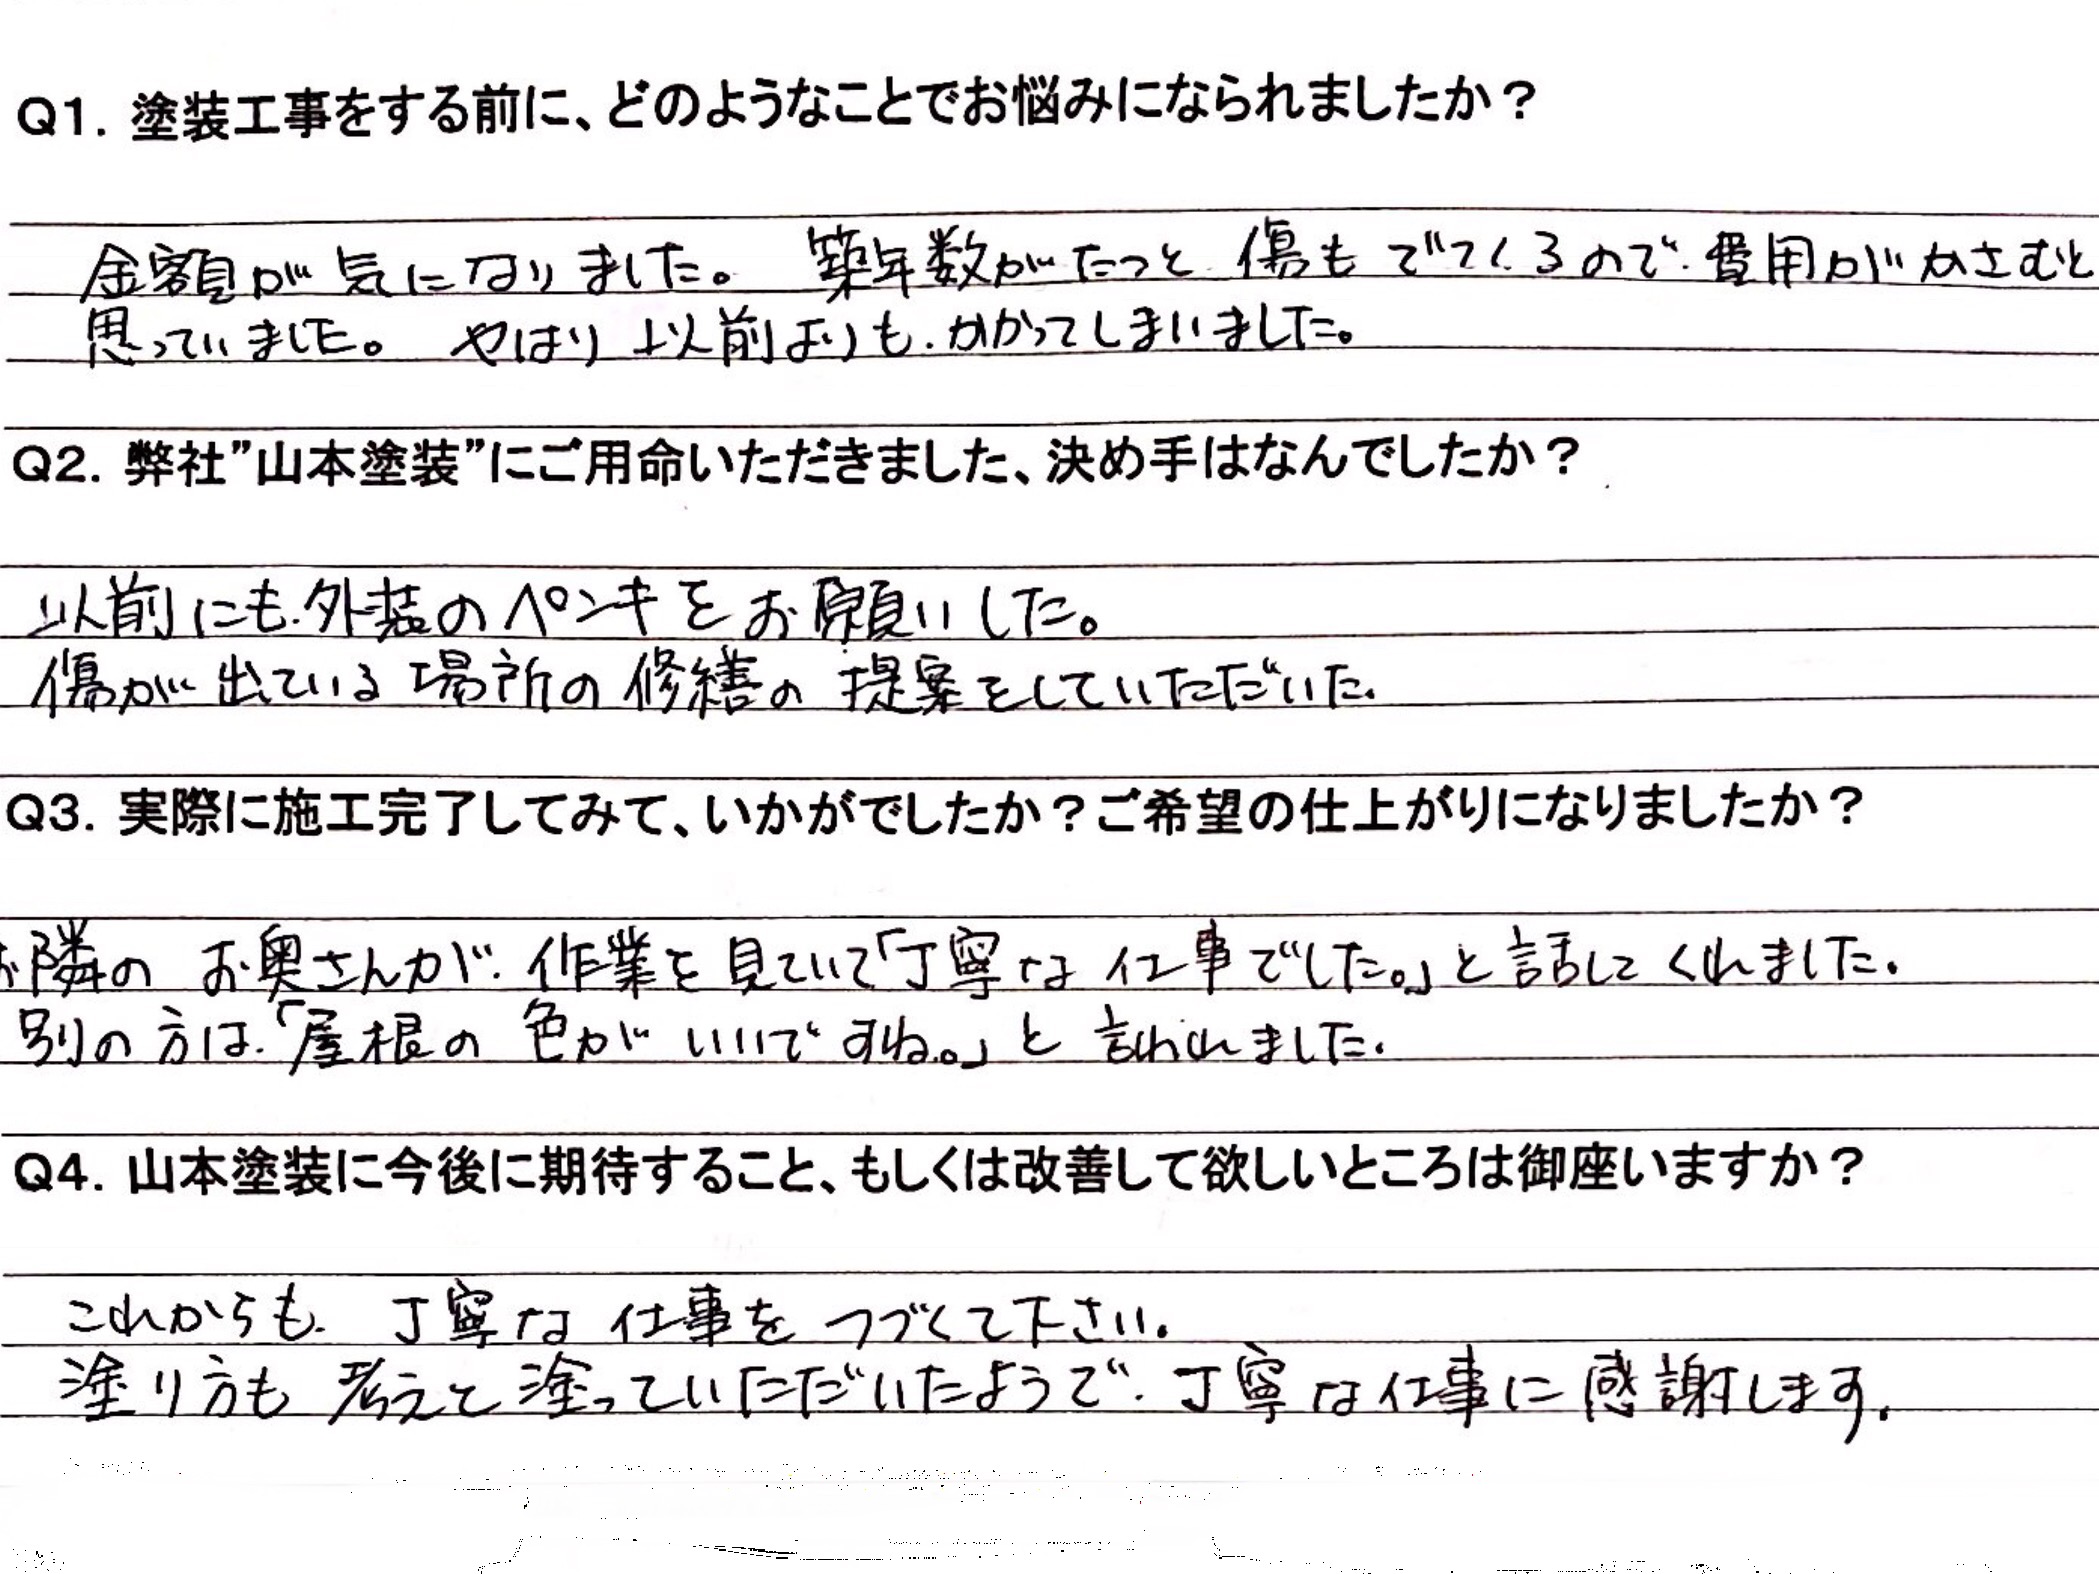 Q1. 塗装工事をする前に、どのようなことでお悩みになられましたか？
金額が気になりました。 築年数がたつと傷もでてくるので、費用がかさむと
思っていました。 やはり以前よりも、かかってしまいました。
Q2. 弊社”山本塗装”にご用命いただきました、決め手はなんでしたか？
以前にも、外装のペンキをお願いした。
傷が出ている場所の修繕の提案をしていただいた。
Q3. 実際に施工完了してみて、いかがでしたか？ご希望の仕上がりになりましたか？
お隣のお奥さんが、作業を見ていて「丁寧な仕事でした。」と話してくれました。
別の方は、「屋根の色がいいですね。」と言われました。
Q4. 山本塗装に今後に期待すること、もしくは改善して欲しいところは御座いますか？
これからも、丁寧な仕事をつづくて下さい。
塗り方も考えて塗っていただいたようで、丁寧な仕事に感謝します。